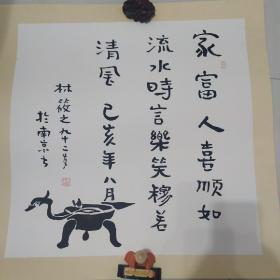 家富人喜順如
流水時言樂笑穆若
清風 己亥年八月
林筱之九十二歲
於南京書